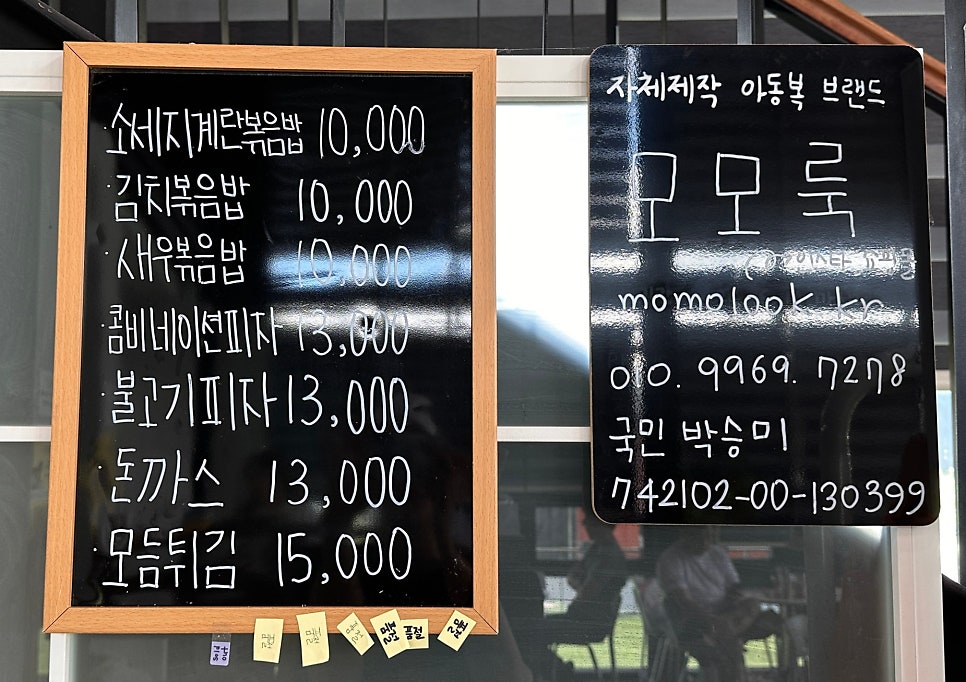 · 소세지계란볶음밥 10,000
· 김치볶음밥 10,000
· 새우볶음밥 10,000
· 콤비네이션피자 13,000
· 불고기피자 13,000
· 돈까스 13,000
· 모듬튀김 15,000
sold out
품절
품절
품절
품절
품절
품절
자체제작 아동복 브랜드
모모룩
momolook.kr
010. 9969. 7278
국민 박승미
742102-00-130399